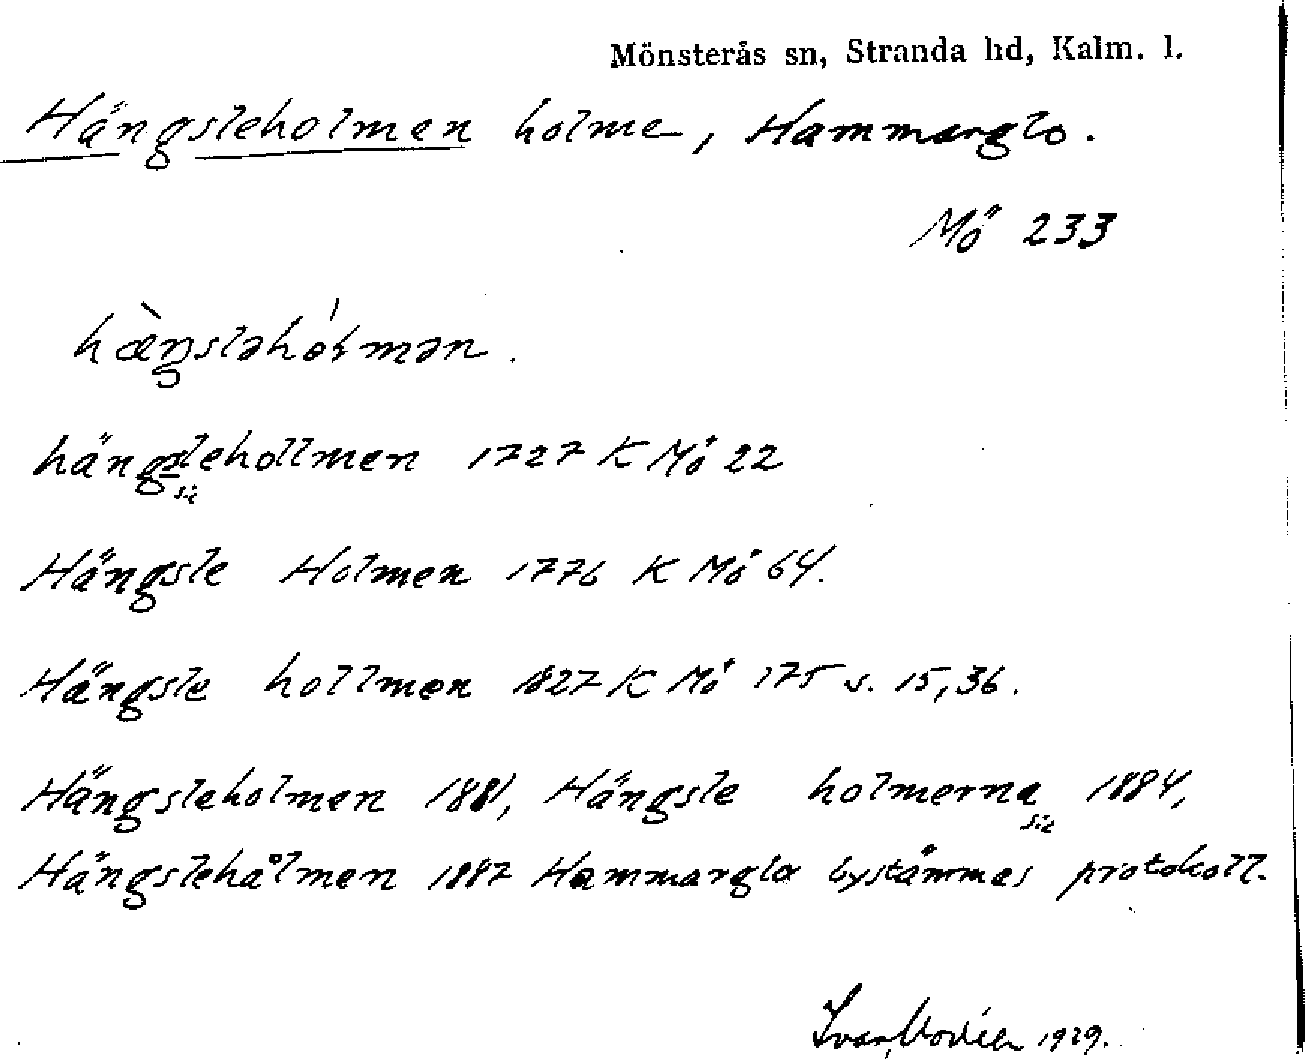 Mönsterås sn, Stranda hd, Kalm. l.
Hängsleholmen holme, Hammarglo.
Mö 233
hæ̀ŋsləhól̥mən.
hängsleholmen 1727 K Mö 22
sic
Hängsle Holmen 1776 K Mö 64.
Hängsle hollmen 1827 K Mö 175 s. 15, 36.
Hängsleholmen 1881, Hängsle holmerna 1884,
sic
Hängslehålmen 1887 Hammarglo bystämmes protokoll.
Ivar Modéer 1929.